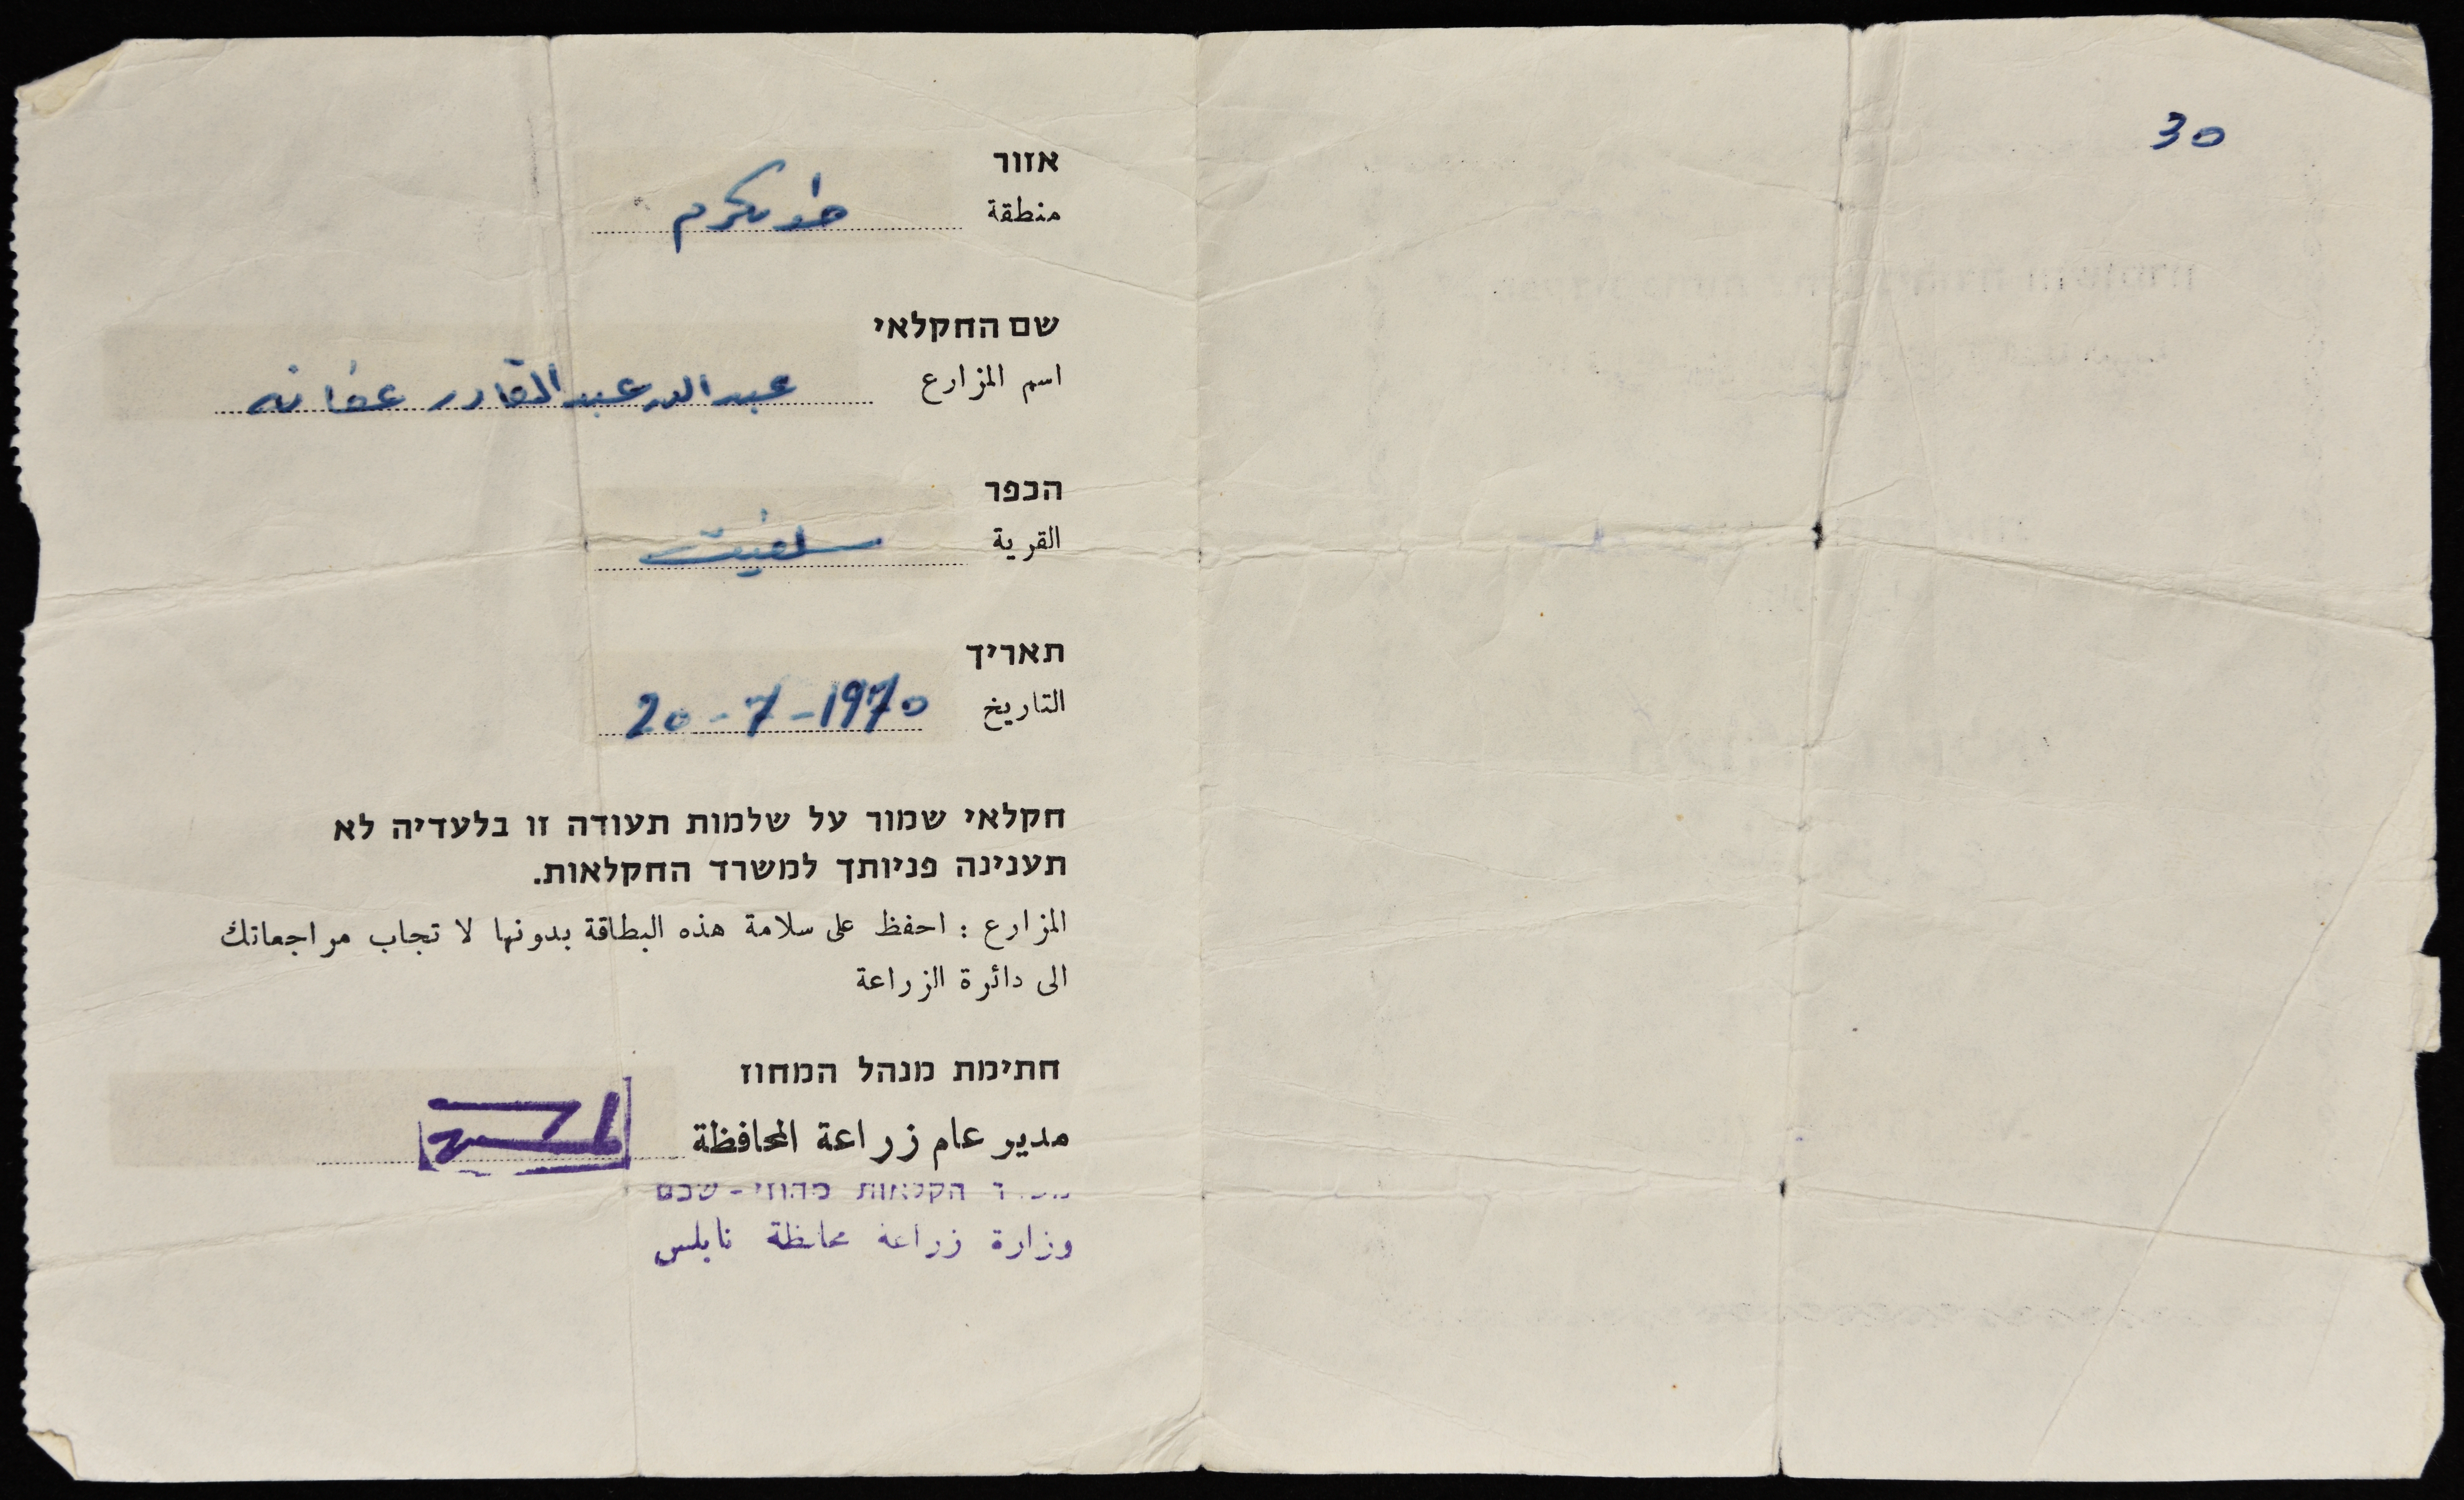 30
אזור
منطقة طولكرم
שם החקלאי
اسم المزارع عبد الله عبد القادر عفانه
הכפר
القرية سلفيت
תאריך
التاريخ 20-7-1970
חקלאי שמור על שלמות תעודה זו בלעדיה לא
תענינה פניותך למשרד החקלאות.
المزارع : احفظ على سلامة هذه البطاقة بدونها لا تجاب مراجعاتك
الى دائرة الزراعة
חתימת מנהל המחוז
مدير عام زراعة المحافظة
חקלאות מחוזי - שכם
وزارة زراعة محافظة نابلس